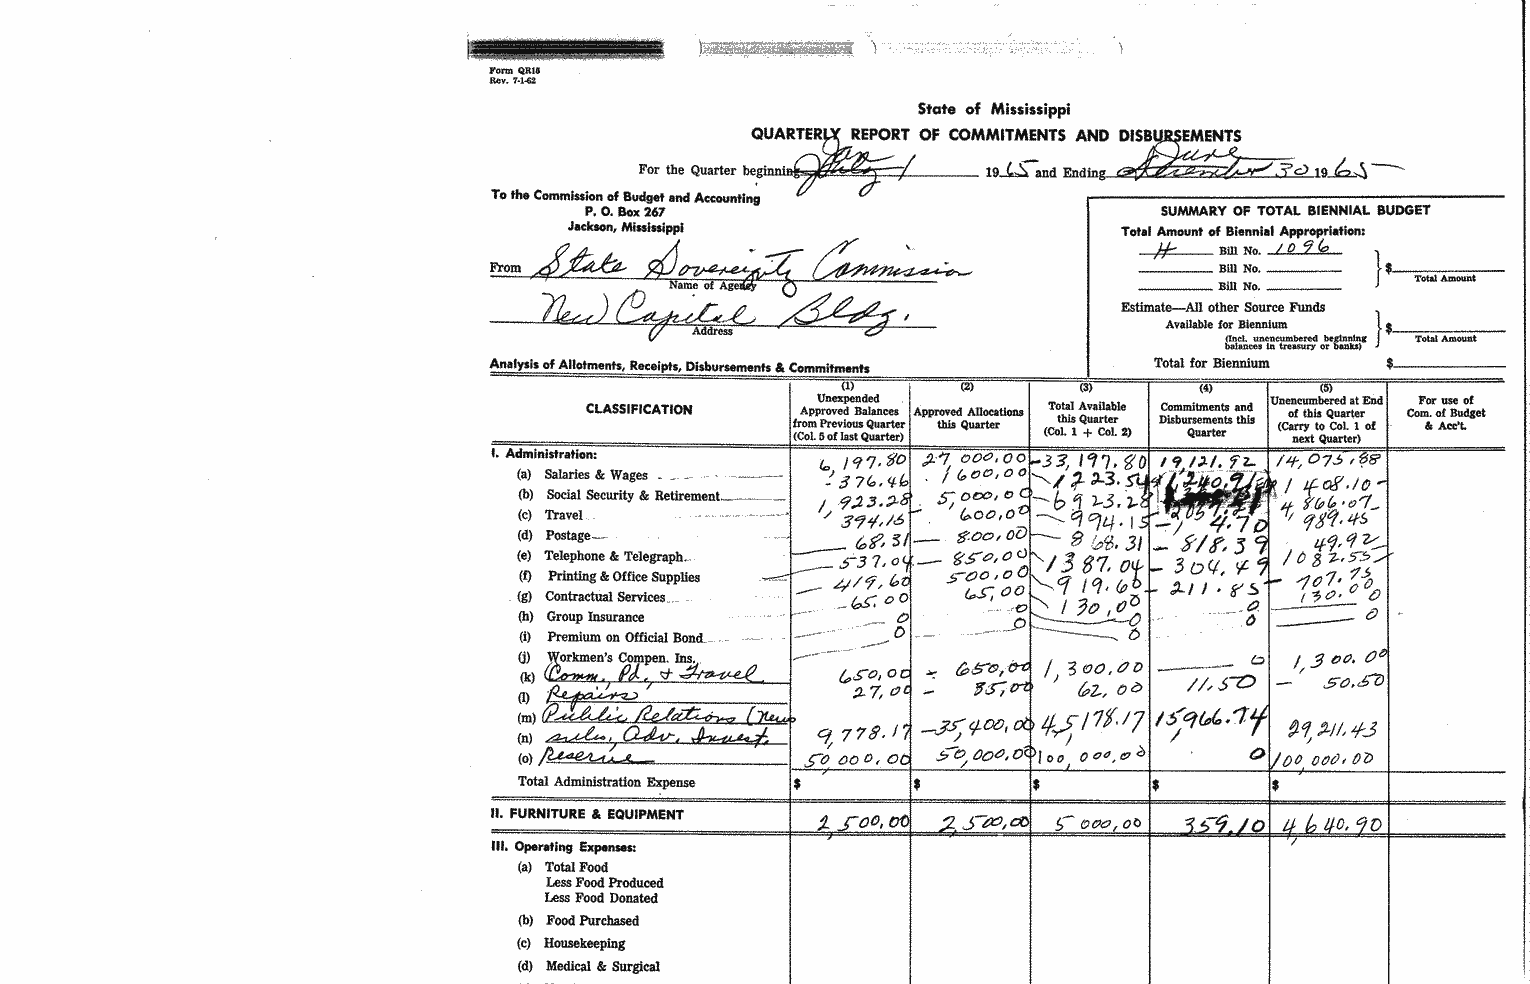 Form QR16
Rev. 7-1-62
State of Mississippi
QUARTERLY REPORT OF COMMITMENTS AND DISBURSEMENTS
For the Quarter beginning Jan 1 1965 and Ending June 30 1965
To the Commission of Budget and Accounting
P. O. Box 267
Jackson, Mississippi
From State Sovereignty Commission
Name of Agency
New Capital Bldg.
Address
SUMMARY OF TOTAL BIENNIAL BUDGET
Total Amount of Biennial Appropriation:
H Bill No. 1096
Bill No.
Bill No.
$
Total Amount
Estimate—All other Source Funds
Available for Biennium
(Incl. unencumbered beginning
balances in treasury or banks)
$
Total Amount
Total for Biennium $
Analysis of Allotments, Receipts, Disbursements & Commitments
CLASSIFICATION
(1)
Unexpended
Approved Balances
from Previous Quarter
(Col. 5 of last Quarter)
(2)
Approved Allocations
this Quarter
(3)
Total Available
this Quarter
(Col. 1 + Col. 2)
(4)
Commitments and
Disbursements this
Quarter
(5)
Unencumbered at End
of this Quarter
(Carry to Col. 1 of
next Quarter)
For use of
Com. of Budget
& Acc't.
I. Administration:
(a) Salaries & Wages 6,197.80 27,000.00 33,197.80 19,121.92 14,075.88
(b) Social Security & Retirement 376.46 1600.00 1223.54 1408.10
(c) Travel 1,923.28 5,000.00 6923.28 4,866.07
(d) Postage 394.15 600.00 994.15 4.70 989.45
(e) Telephone & Telegraph 68.31 800.00 868.31 818.39 49.92
(f) Printing & Office Supplies 537.04 850.00 1387.04 304.49 1082.55
(g) Contractual Services 419.60 500.00 919.60 211.85 707.75
(h) Group Insurance 65.00 65.00 130.00 0 130.00
(i) Premium on Official Bond 0 0 0 0 0
(j) Workmen's Compen. Ins. 0 0 0 0 0
(k) Comm. Pd. & Travel 650.00 650.00 1,300.00 0 1,300.00
(l) Repairs 27.00 35.00 62.00 11.50 50.50
(m) Public Relations (News
(n) Adv. Invest. 9,778.17 35,400.00 45,178.17 15,966.74 29,211.43
(o) Reserve 50,000.00 50,000.00 100,000.00 0 100,000.00
Total Administration Expense $ $ $ $ $
II. FURNITURE & EQUIPMENT 2,500.00 2,500.00 5000.00 359.10 4,640.90
III. Operating Expenses:
(a) Total Food
Less Food Produced
Less Food Donated
(b) Food Purchased
(c) Housekeeping
(d) Medical & Surgical